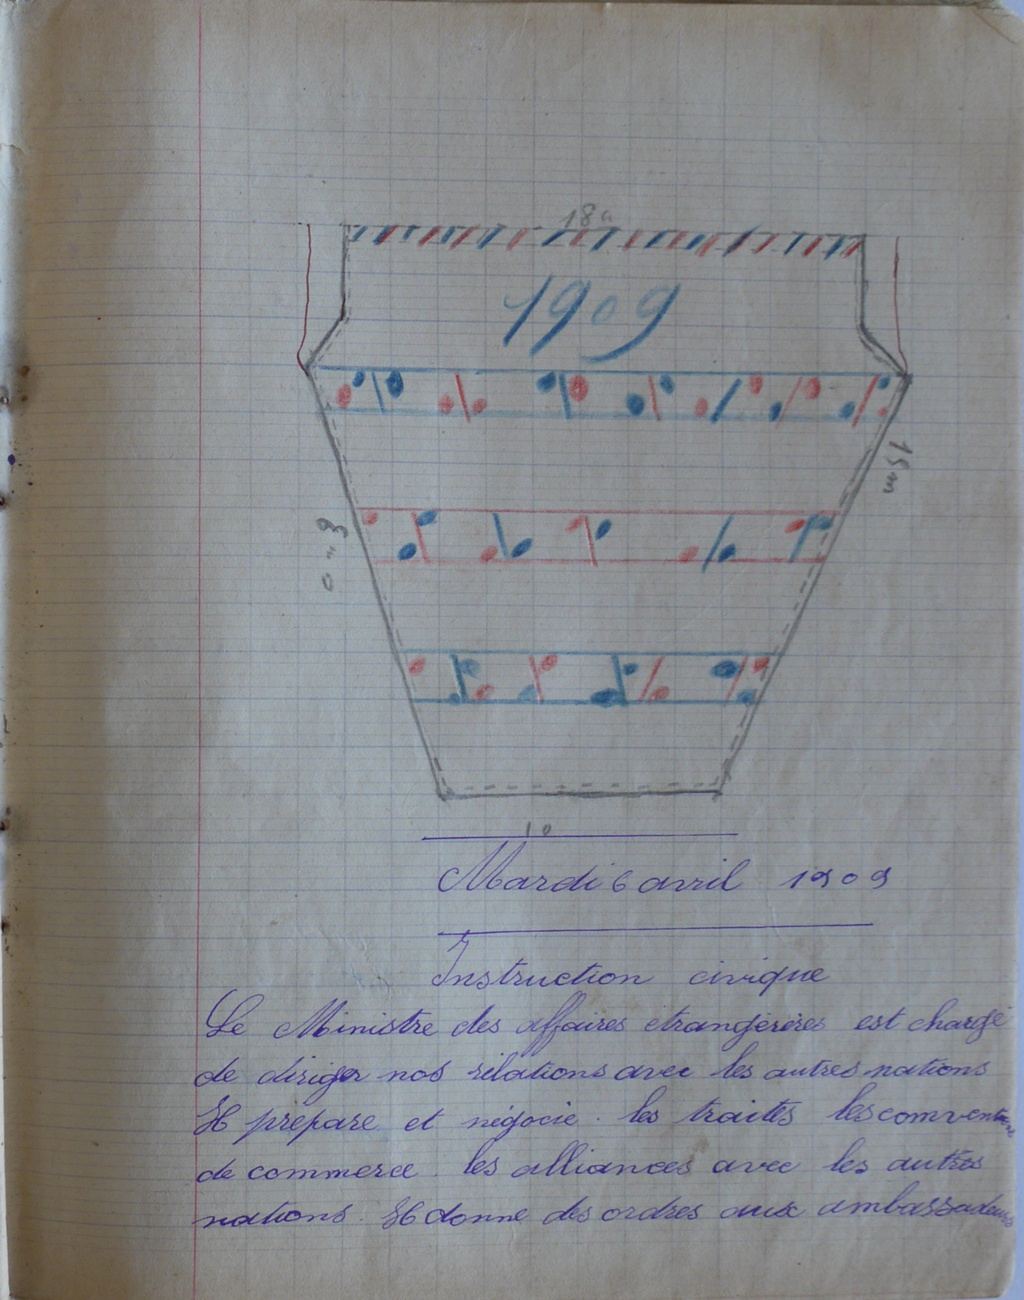 1909
10
Mardi 6 avril 1909
Instruction civique
Le Ministre des affaires étrangérères est chargé
de diriger nos relations avec les autres nations
Il prépare et négocie . les traités les conventions
de commerce . les alliances avec les autres
nations . Il donne des ordres aux ambassadeurs